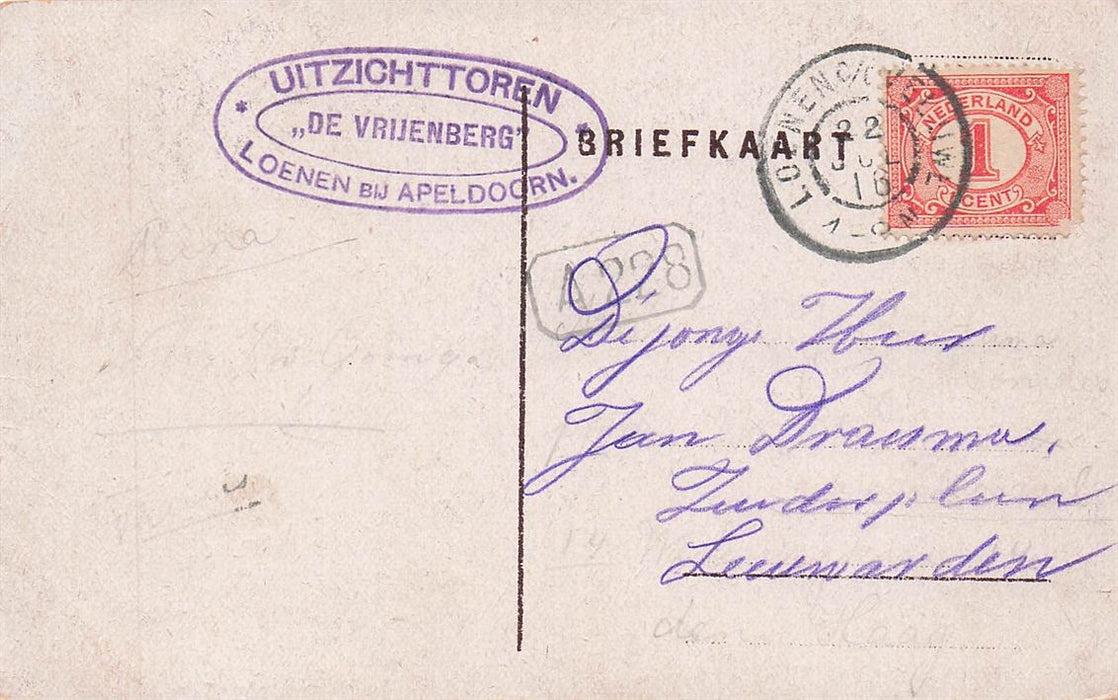 UITZICHTTOREN
„DE VRIJENBERG”
LOENEN BIJ APELDOORN.
BRIEFKAART
LOENEN
22
JUL
16
NEDERLAND
1
CENT
A 228
De jonge Heer
Jan Draisma.
Zuiderplein
Leeuwarden
den Haag